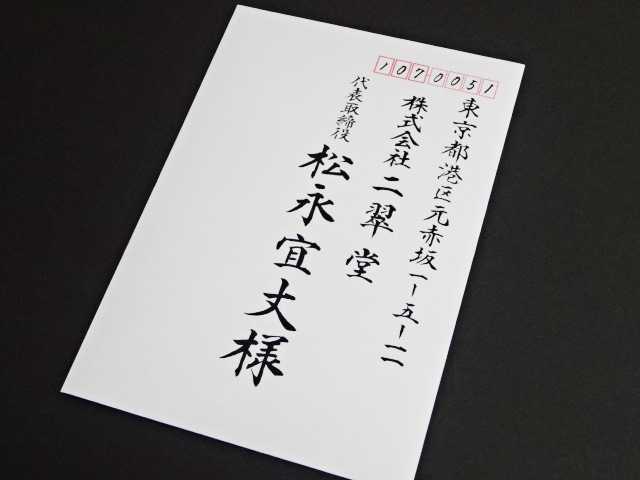 1070051
東京都港区元赤坂一ー五ー一二
株式会社二翠堂
代表取締役
松永宜丈様